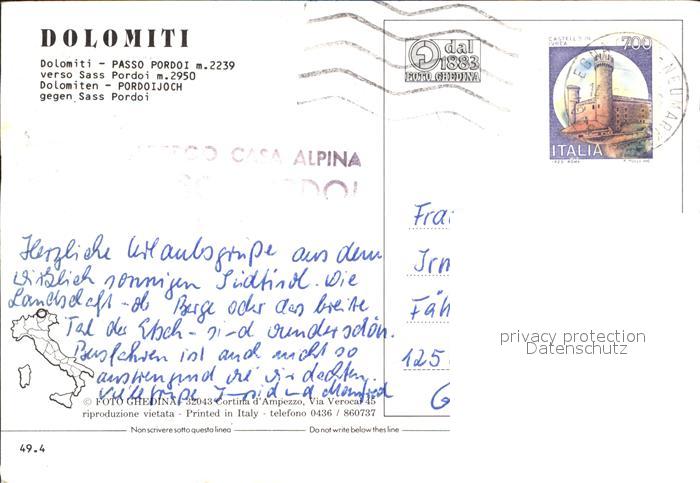 DOLOMITI
Dolomiti - PASSO PORDOI m.2239
verso Sass Pordoi m.2950
Dolomiten - PORDOIJOCH
gegen Sass Pordoi
dal
1883
FOTO GHEDINA
CASTELLO DI
IVREA
700
ITALIA
CASA ALPINA
Herzliche Urlaubsgrüße aus dem
wirklich sonnigen Südtirol. Die
Landschaft - ob Berge oder das breite
Tal der Etsch - sind wunderschön.
Busfahren ist auch nicht so
anstrengend wie wir dachten.
Viele Grüße und Manfred
Fra
Irm
Fäh
125
G
privacy protection
Datenschutz
© FOTO GHEDINA - 32043 Cortina d'Ampezzo, Via Verocai 45
riproduzione vietata - Printed in Italy - telefono 0436 / 860737
Non scrivere sotto questa linea
Do not write below thes line
49.4